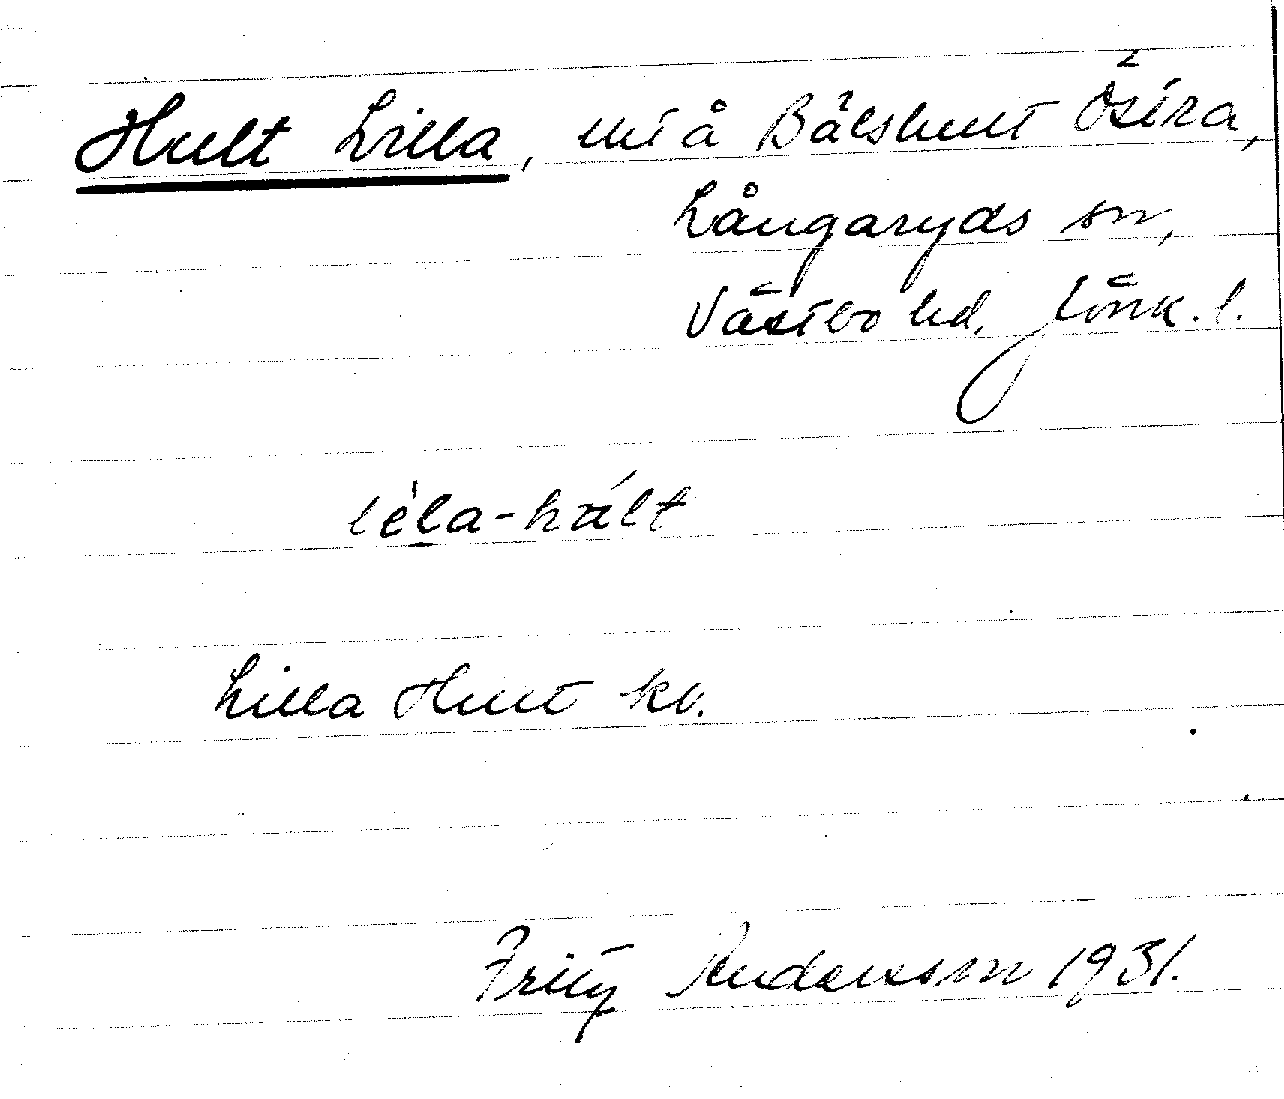 Hult Lilla, ut å Bälshult Östra,
Långaryds sn,
Västbo hd. Jönk. l.
lèla-hált
Lilla Hult kb.
Fritz Andersson 1931.